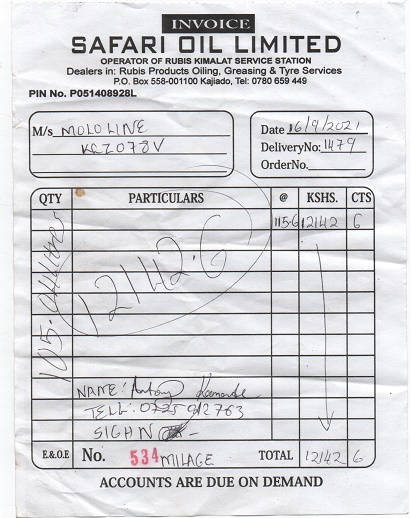 INVOICE
SAFARI OIL LIMITED
OPERATOR OF RUBIS KIMALAT SERVICE STATION
Dealers in: Rubis Products Oiling, Greasing & Tyre Services
P.O. Box 558-001100 Kajiado, Tel: 0780 659 449
PIN No. P051408928L
M/s MOLOLINE
KCZ078V
Date 16/9/2021
DeliveryNo: 1479
OrderNo.
QTY PARTICULARS @ KSHS. CTS
115.6 12142 6
105.04 litres
12142.6
NAME: Antony
TELL: 0725 912763
SIGHN
E.&O.E No. 534 MILAGE TOTAL 12142 6
ACCOUNTS ARE DUE ON DEMAND